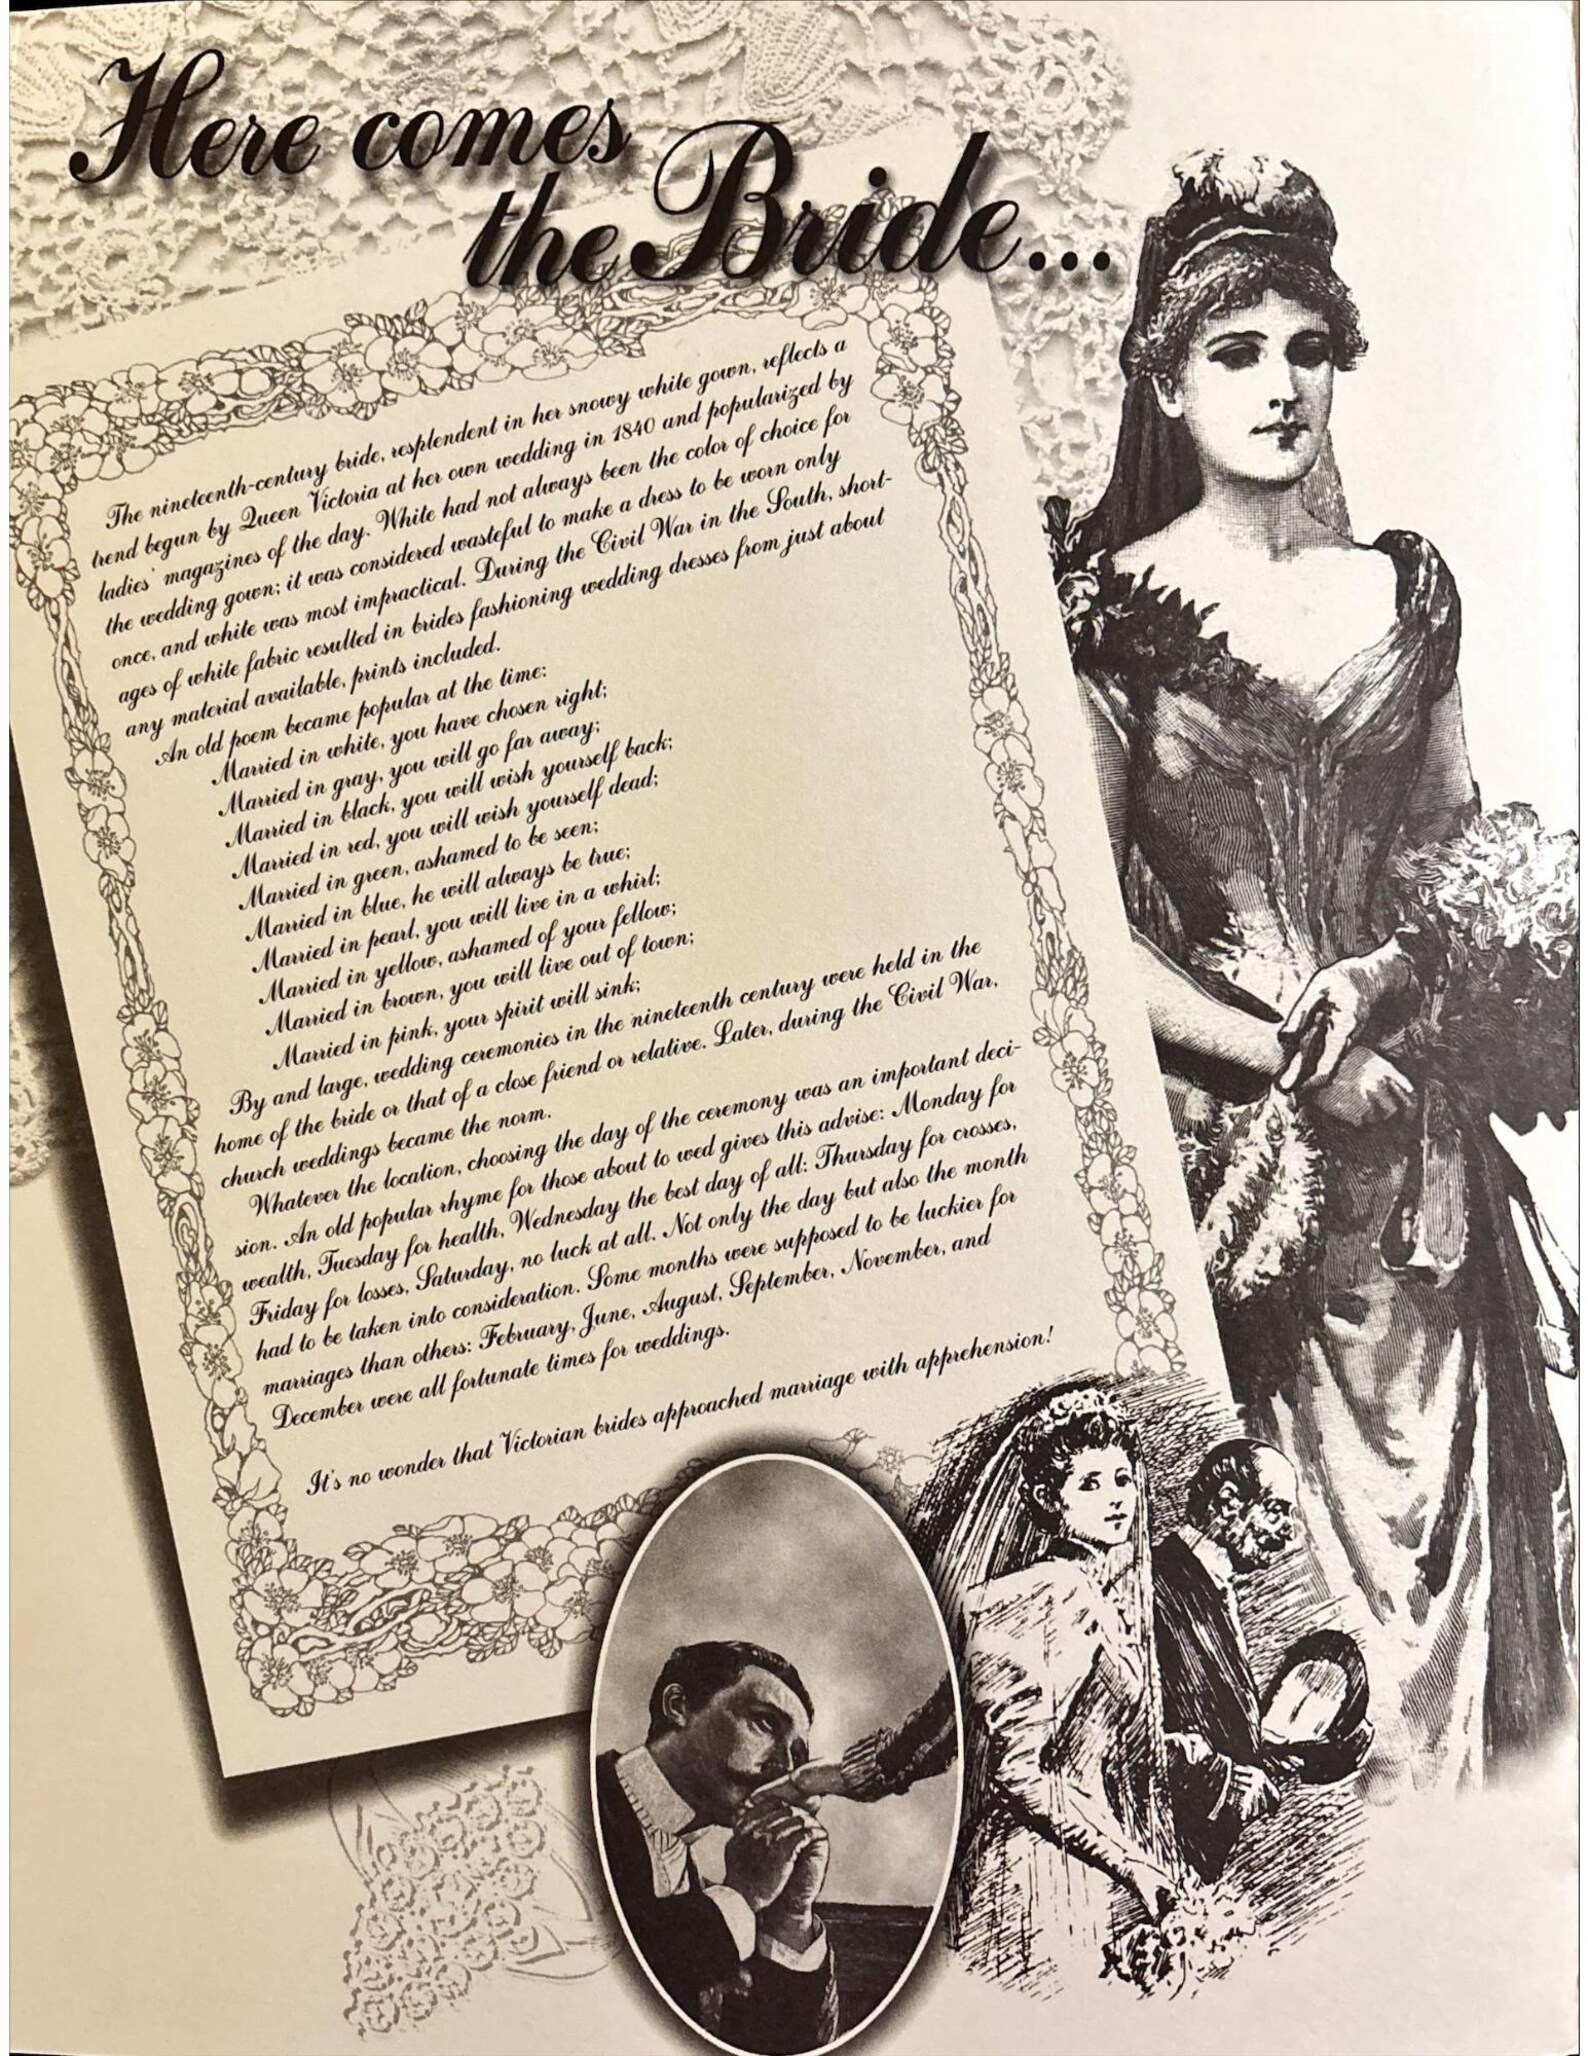 Here comes
the Bride...
The nineteenth-century bride, resplendent in her snowy white gown, reflects a
trend begun by Queen Victoria at her own wedding in 1840 and popularized by
ladies' magazines of the day. White had not always been the color of choice for
the wedding gown; it was considered wasteful to make a dress to be worn only
once, and white was most impractical. During the Civil War in the South, short-
ages of white fabric resulted in brides fashioning wedding dresses from just about
any material available, prints included.
An old poem became popular at the time:
Married in white, you have chosen right;
Married in gray, you will go far away;
Married in black, you will wish yourself back;
Married in red, you will wish yourself dead;
Married in green, ashamed to be seen;
Married in blue, he will always be true;
Married in pearl, you will live in a whirl;
Married in yellow, ashamed of your fellow;
Married in brown, you will live out of town;
Married in pink, your spirit will sink;
By and large, wedding ceremonies in the nineteenth century were held in the
home of the bride or that of a close friend or relative. Later, during the Civil War,
church weddings became the norm.
Whatever the location, choosing the day of the ceremony was an important deci-
sion. An old popular rhyme for those about to wed gives this advise: Monday for
wealth, Tuesday for health, Wednesday the best day of all: Thursday for crosses,
Friday for losses, Saturday, no luck at all. Not only the day but also the month
had to be taken into consideration. Some months were supposed to be luckier for
marriages than others: February, June, August, September, November, and
December were all fortunate times for weddings.
It's no wonder that Victorian brides approached marriage with apprehension!